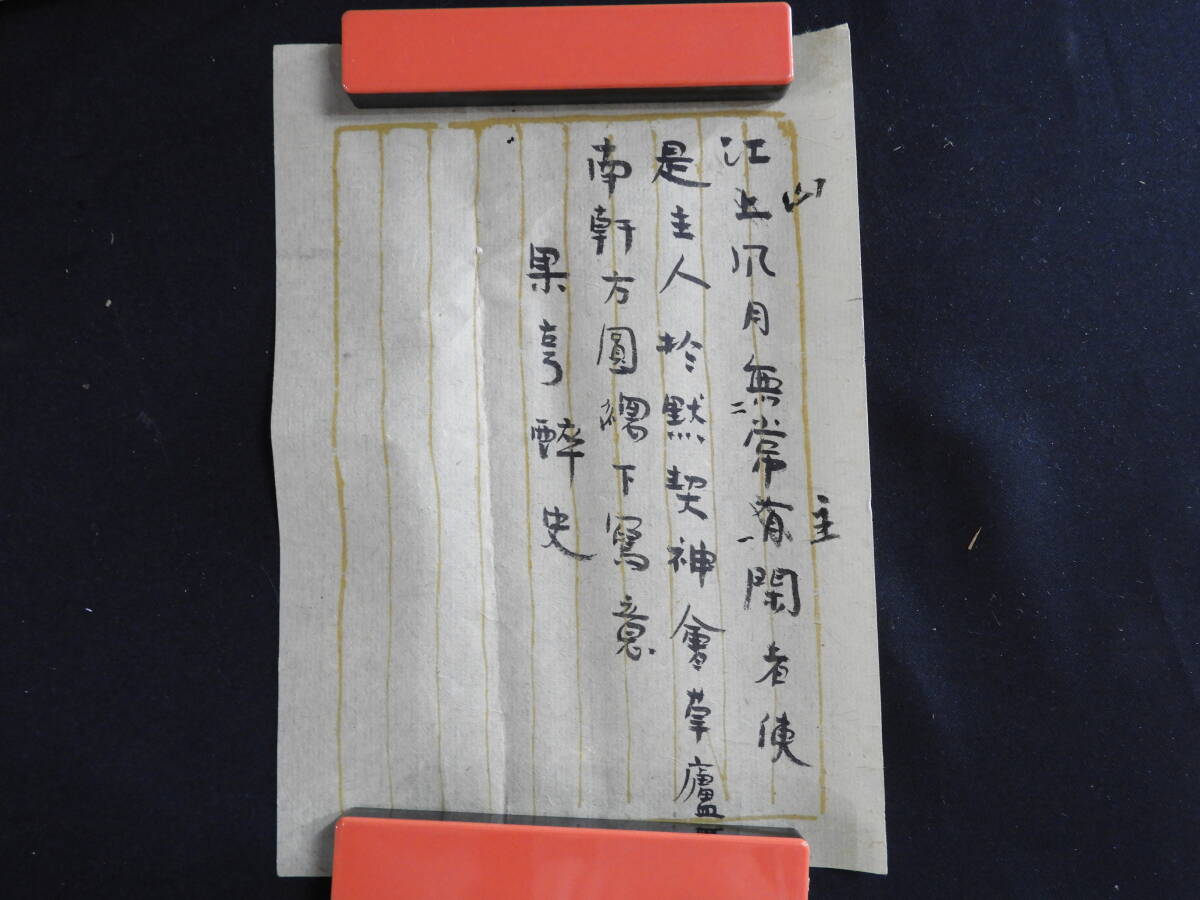 江上風月無常有閑者使
山
主
是主人於默契神會草廬
南軒方圓獨下寫意
果亭醉史